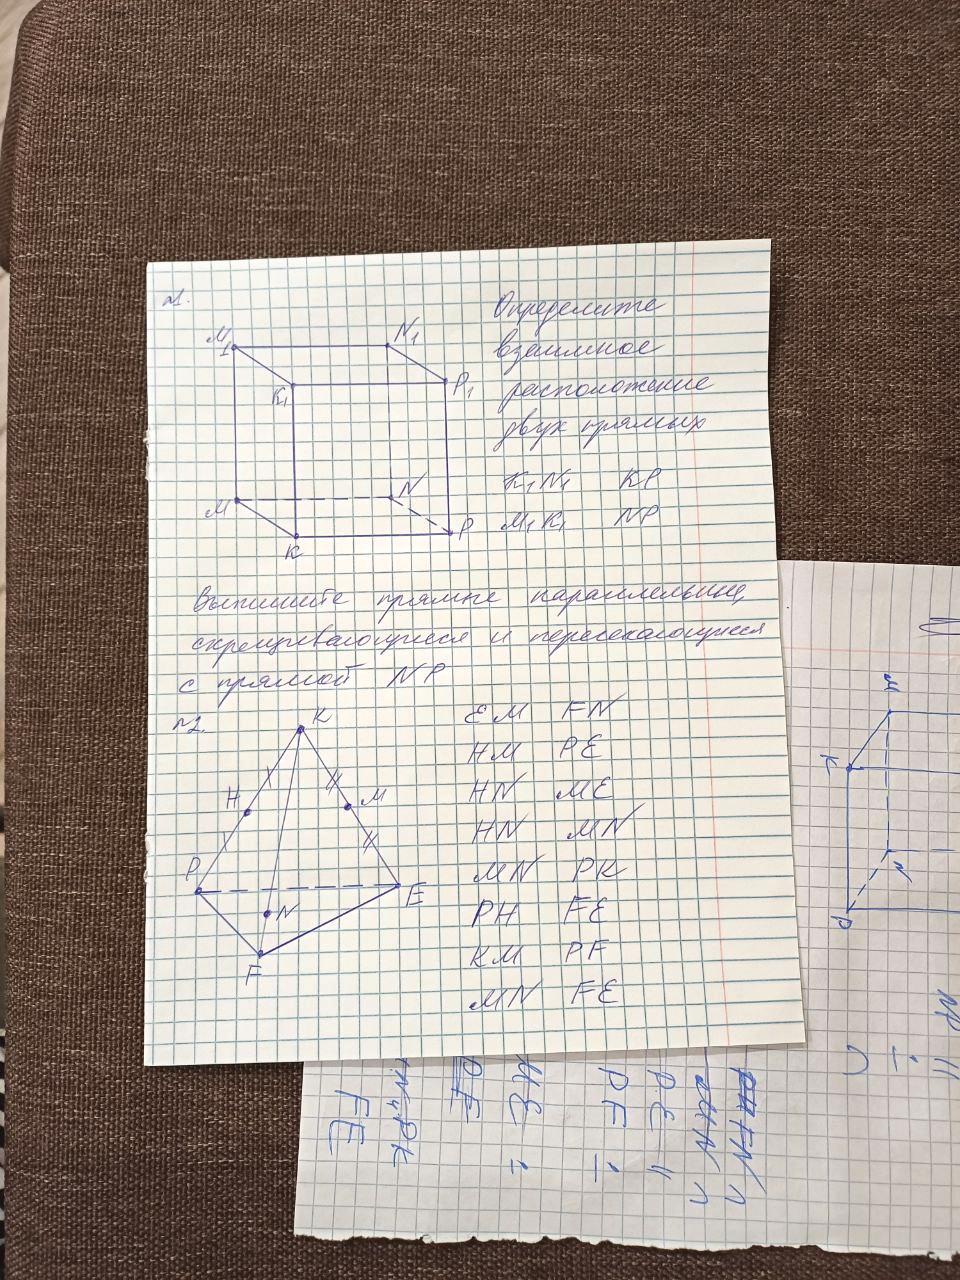 №1.
Определите
взаимное
расположение
двух прямых
M₁
N₁
K₁
P₁
K₁N₁ KP
M₁K₁ NP
M
N
K
P
Выпишите прямые параллельные,
скрещивающиеся и пересекающиеся
с прямой NP
№2.
K
H
M
P
E
N
F
EM FN
HM PE
HN ME
HN MN
MN PK
PH FE
KM PF
MN FE
M
K
N
P
NP ||
FE
PE ||
PF